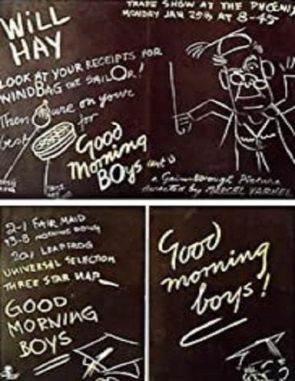 TRADE SHOW AT THE PHOENIX
MONDAY JAN 25th AT 8-45
WiLL
HAY
LOOK AT YOUR RECEIPTS FOR
WINDBAG THE SAILOR!
Then figure on your
best for
Good
Morning
BOys (cert U)
a Gainsborough Picture
directed by MARCEL VARNEL
2-1 FAIR MAID
13-8 MORNING DEW
20-1 LEAPFROG
UNIVERSAL SELECTION
THREE STAR NAP
GOOD
MORNING
BOYS
Good
morning
boys!